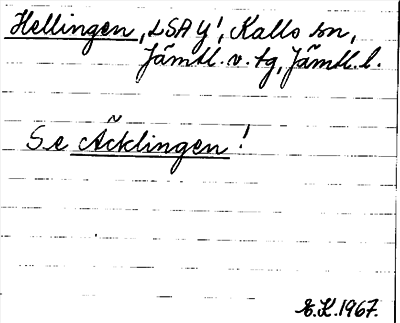 Hellingen, LSA y!, Kalls sn,
Jämtl. v. tg, Jämtl. l.
Se Äcklingen!
E.K. 1967.